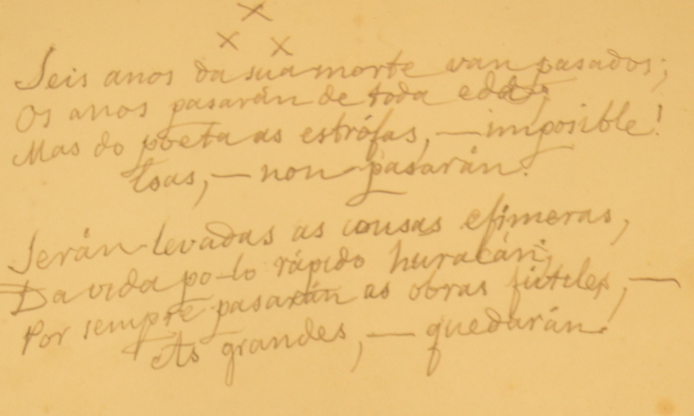 X
X X
Seis anos da sua morte van pasados;
Os anos pasarán de toda edá;
Mas do poeta as estrófas, — imposible!
Esas, — non pasarán.
Serán levadas as cousas efímeras,
Da vida po-lo rápido huracán;
Por sempre pasarán as obras fútiles, —
As grandes, — quedarán.